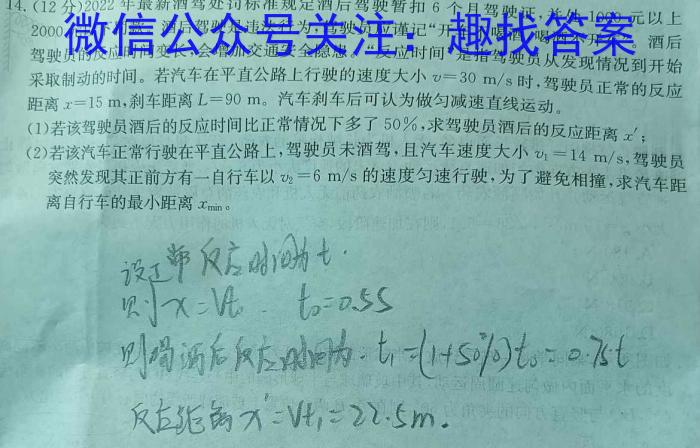 14.(12分)2022年最新酒驾处罚标准规定酒后驾驶暂扣6个月驾驶证,并处1000元以上
2000
微信公众号关注:趣找答案
驾驶员的反应时间变 会增加交通安全隐患。“反应时间”是指驾驶员从发现情况到开始
采取制动的时间。若汽车在平直公路上行驶的速度大小v=30 m/s时,驾驶员正常的反应
距离x=15 m,刹车距离L=90 m。汽车刹车后可认为做匀减速直线运动。
(1)若该驾驶员酒后的反应时间比正常情况下多了50%,求驾驶员酒后的反应距离x′;
(2)若该汽车正常行驶在平直公路上,驾驶员未酒驾,且汽车速度大小v₁=14 m/s,驾驶员
突然发现其正前方有一自行车以v₂=6 m/s的速度匀速行驶,为了避免相撞,求汽车距
离自行车的最小距离xmin。
设正常反应时间为t.
则x=Vt₀ t₀=0.5s
则喝酒后反应时间为 t₁=(1+50%)t₀=0.75t
反应距离x′=Vt₁=22.5m.